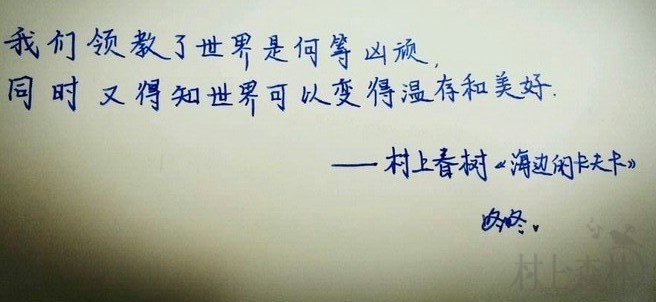 我们领教了世界是何等凶顽,
同时又得知世界可以变得温存和美好.
——村上春树《海边的卡夫卡》
村上森林